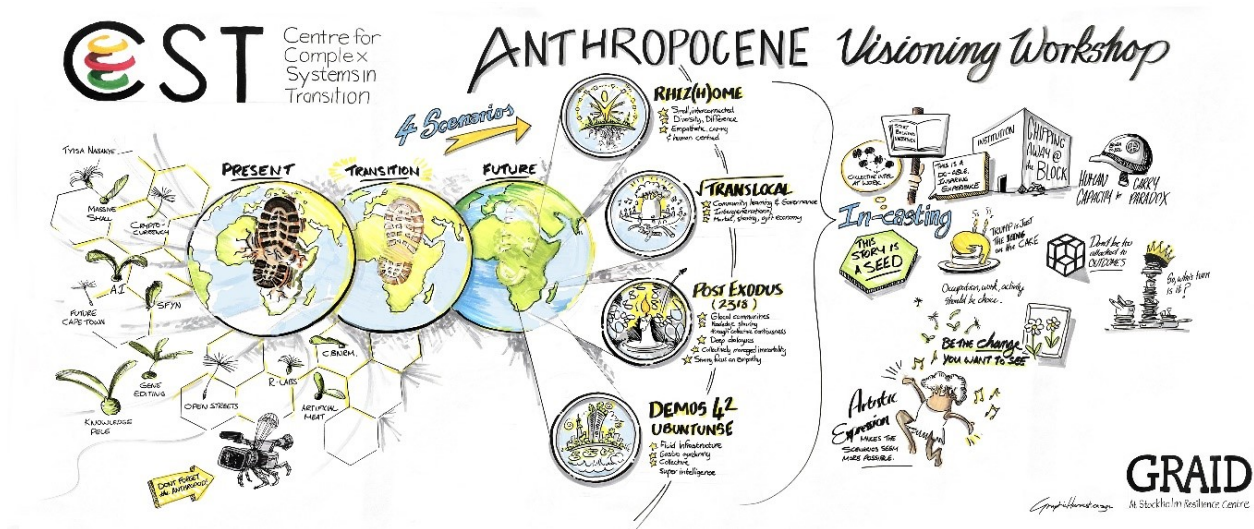 CST
Centre for
Complex
Systems in
Transition
ANTHROPOCENE Visioning Workshop
4 Scenarios
PRESENT
TRANSITION
FUTURE
MASSIVE
SMALL
CRYPTO-
CURRENCY
A.I
SFYN
FUTURE
CAPE TOWN
GENE
EDITING
KNOWLEDGE
PELE
OPEN STREETS
R-LABS
C.B.N.R.M.
ARTIFICIAL
MEAT
DON'T FORGET
the ANTHROPOD!
RHIZ(H)OME
Small, interconnected
Diversity, Difference
Empathetic, caring
& human centred
TRANSLOCAL
Community learning & Governance
Intergenerational,
Market, sharing, gift economy
POST EXODUS
(2318)
Glocal communities
Knowledge sharing
through collective consciousness
Deep dialogues
Collectively managed immortality
Strong focus on Empathy
DEMOS 42
UBUNTUNSE
Fluid Infrastructure
Gastro
Collective
Super intelligence
COLLECTIVE INTEL
AT WORK
THIS IS A
INSPIRING
EXPERIENCE
INSTITUTION
CHIPPING
AWAY @
the BLOCK
HUMAN
CAPACITY to
CARRY
PARADOX
In-casting
THIS
STORY IS
A SEED
TRUMP is JUST
THE ICING
on the CAKE
Don't be too
attached to
OUTCOMES
So, who's turn
is it?
Occupation, work, activity
should be choice.
BE THE change
YOU WANT TO SEE
Artistic
Expression
MAKES THE
SCENARIOS SEEM
MORE POSSIBLE.
GRAID
At Stockholm Resilience Centre